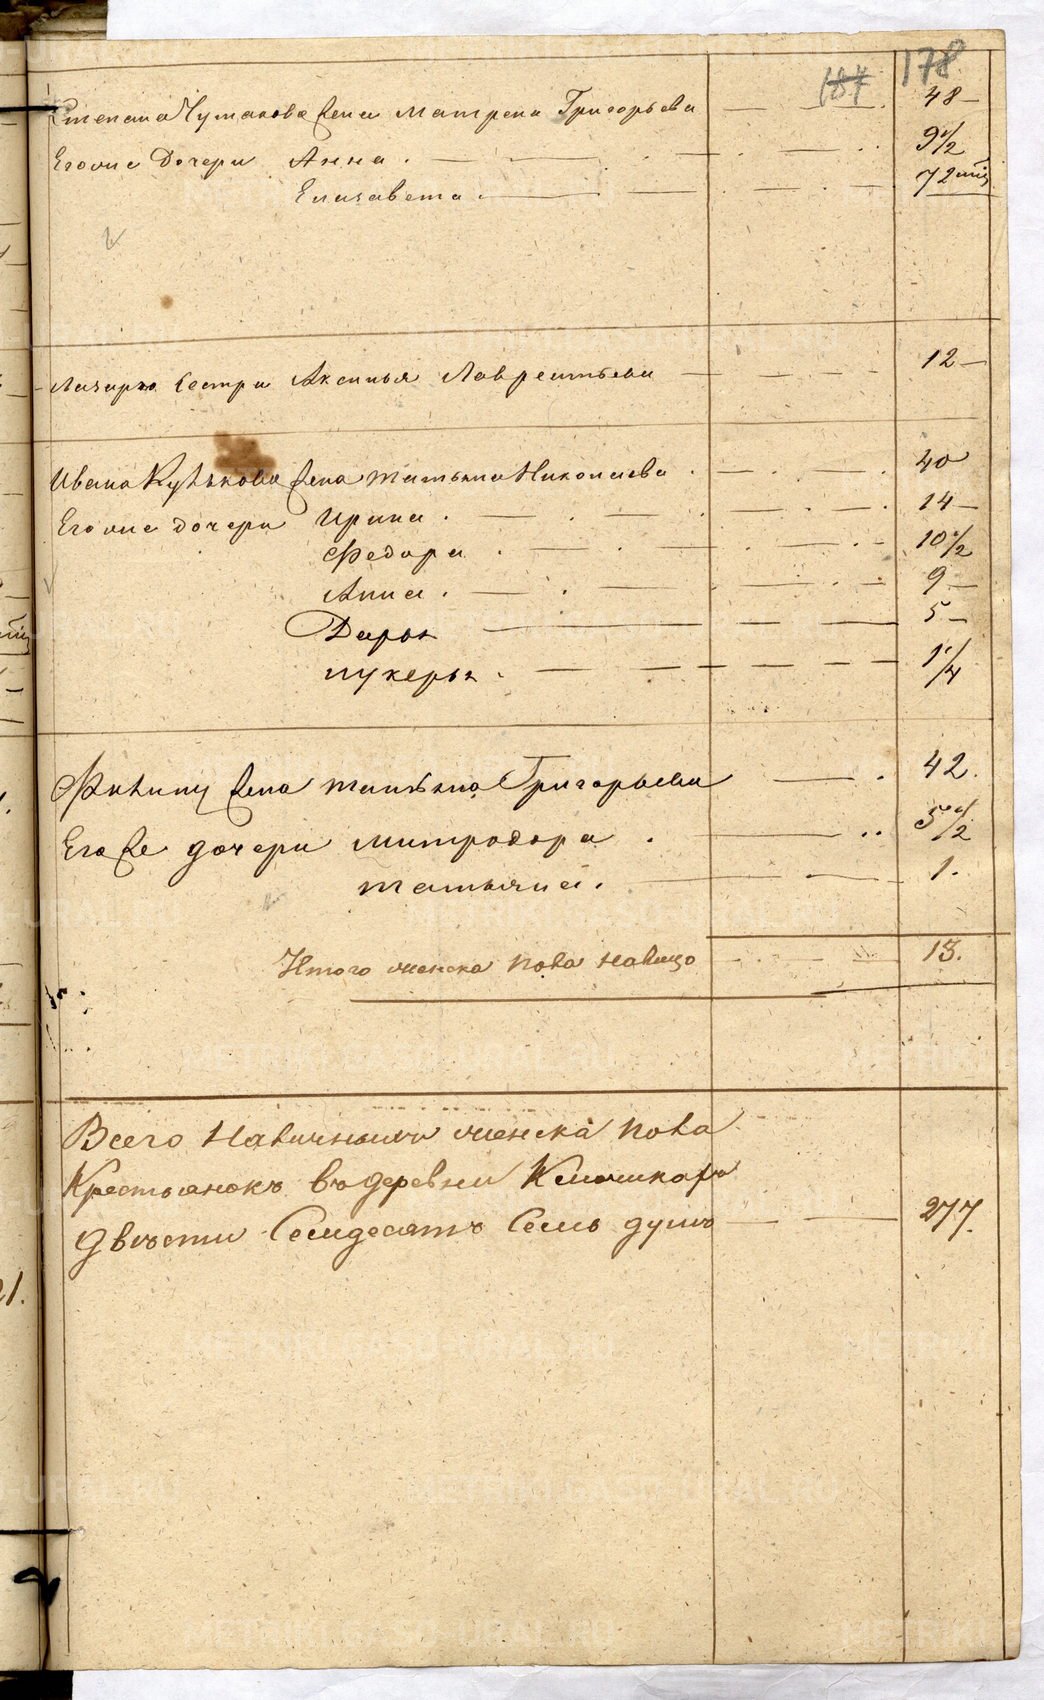 187 178
Степана Чумакова жена Матрена Григорьева 48
Егоже дочери Анна 9 1/2
Елизавета 7
Лазаря сестра Аксинья Лаврентьева 12
Ивана жена Татьяна Николаева 40
Егоже дочери Ирина 14
Федора 10 1/2
Анна 9
Дарья 5
Лукерья 1 1/4
жена Татьяна Григорьева 42.
Егоже дочери Митродора 5 1/2
Татьяна 1.
Итого женска пола налицо 13.
Всего наличными женска пола
Крестьянокъ въ деревни
двѣсти семдесятъ семь душъ 277.